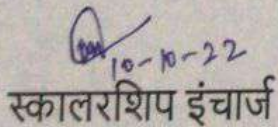 10-10-22
स्कालरशिप इंचार्ज